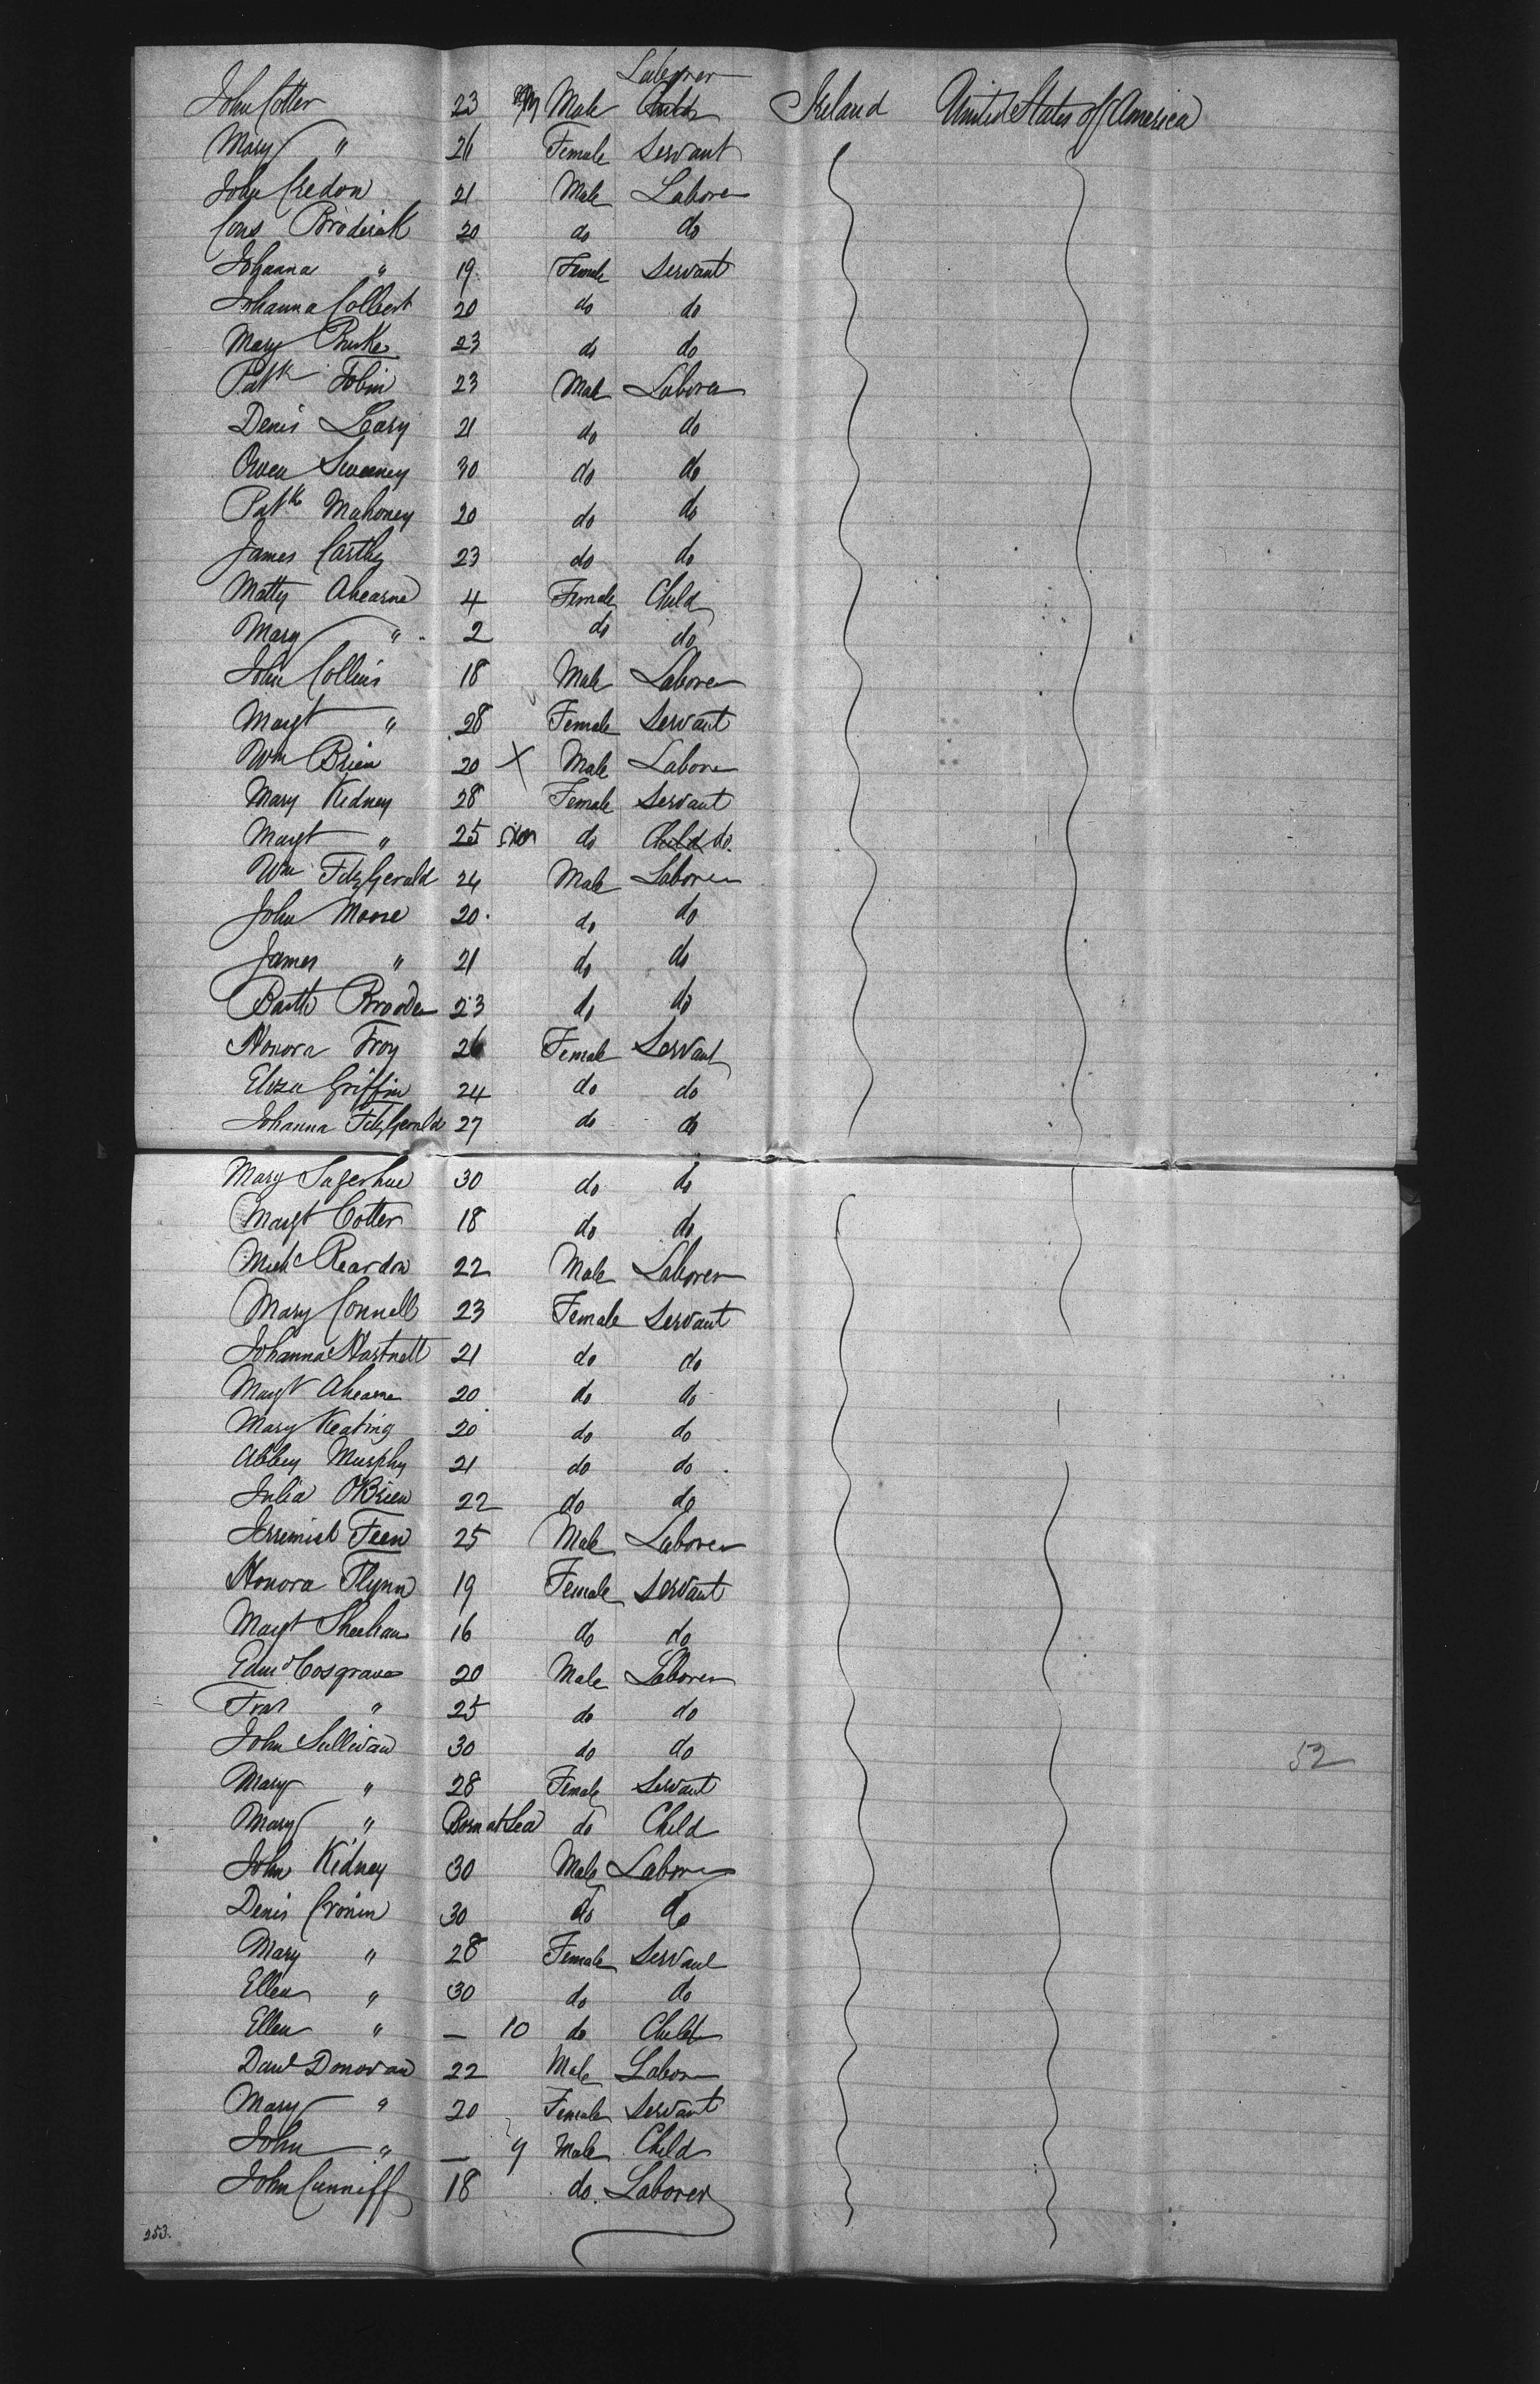 Laborer
John Cotter 23 Male Child Ireland United States of America
Mary " 26 Female Servant
John Credon 21 Male Laborer
Cons Broderick 20 do do
Johanna " 19 Female Servant
Johanna Colbert 20 do do
Mary Burke 23 do do
Patk Tobin 23 Male Laborer
Denis Leary 21 do do
Owen Sweeney 30 do do
Patk Mahoney 20 do do
James Carthy 23 do do
Matty Ahearne 4 Female Child
Mary " 2 do do
John Collins 18 Male Laborer
Margt " 28 Female Servant
Wm Brien 20 X Male Laborer
Mary Kidney 28 Female Servant
Margt " 25 do Child do.
Wm FitzGerald 24 Male Laborer
John Moore 20 do do
James " 21 do do
Barth Brooder 23 do do
Honora Troy 26 Female Servant
Eliza Griffin 24 do do
Johanna FitzGerald 27 do do
Mary 30 do do
Margt Cotter 18 do do
Michl Reardon 22 Male Laborer
Mary Connell 23 Female Servant
Johanna Hartnett 21 do do
Margt Ahearne 20 do do
Mary Keating 20 do do
Abbey Murphy 21 do do
Julia O'Brien 22 do do
Jeremiah Feen 25 Male Laborer
Honora Flynn 19 Female Servant
Margt Sheehan 16 do do
Edmd Cosgrave 20 Male Laborer
Fras " 25 do do
John Sullivan 30 do do
52
Mary " 28 Female Servant
Mary " Born at Sea do Child
John Kidney 30 Male Laborer
Denis Cronin 30 do do
Mary " 28 Female Servant
Ellen " 30 do do
Ellen " — 10 do Child
Danl Donovan 22 Male Laborer
Mary " 20 Female Servant
John " — 9 Male Child
John Cunniff 18 do. Laborer
253.